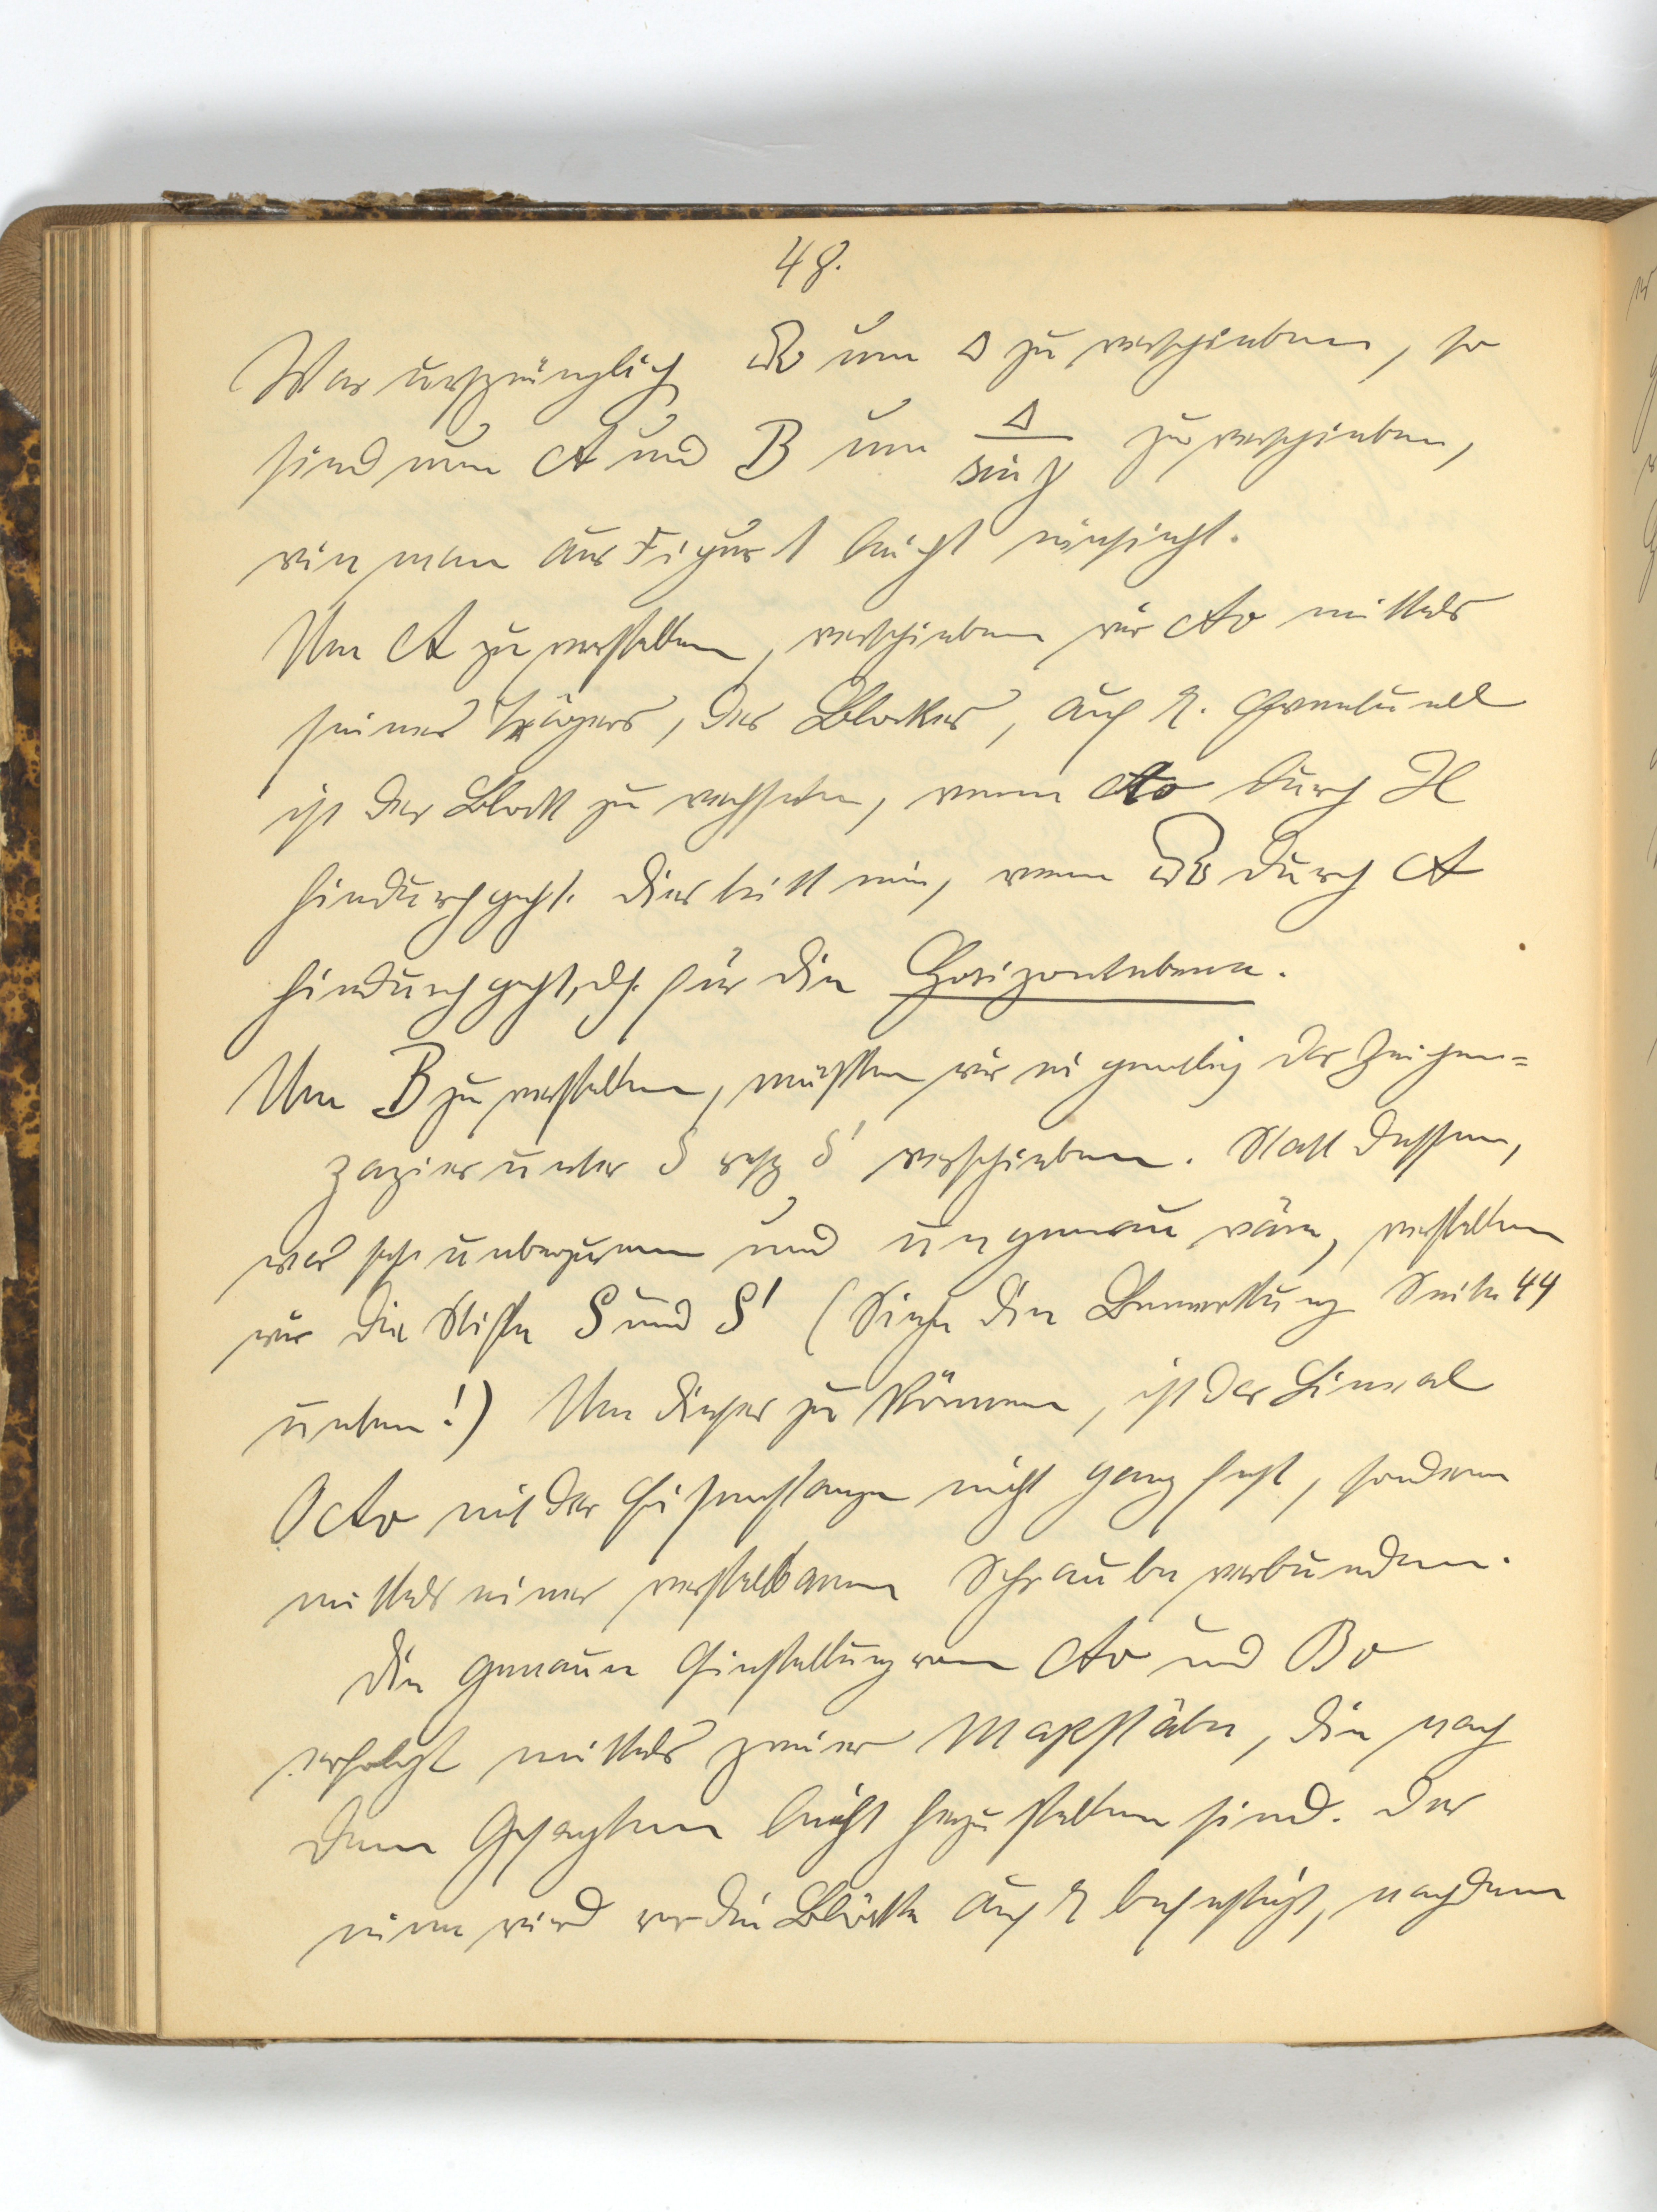 48.
War ursprünglich um Δ zu verschieben, so
sind nun A und B um Δ/sin γ zu verschieben,
wie man aus Figur 1 leicht einsieht.
Um A zu verstellen, verschieben wir A0 mittels
seines Trägers, des Blockes, auf . Eventuell
ist der Block zu wechseln, wenn A0 durch H
hindurchgeht. Dies tritt ein, wenn durch A
hindurchgeht, dh. für die Horizontebene.
Um B zu verstellen, müßten wir eigentlich das Zeichen=
papier unter S resp S' verschieben. Statt dessen,
was sehr unbequem und ungenau wäre, verstellen
wir die Stifte S und S' (Siehe die Bemerkung Seite 44
unten!) Um dieses zu können, ist das Lineal
OA0 mit der Eisenstange nicht ganz fest, sondern
mittels einer verstellbaren Schraube verbunden.
Die genaue Einstellung von A0 und B0
erfolgt mittels zweier Maßstäbe, die nach
dem Gesagten leicht herzustellen sind. Der
eine wird vor die Blöcke auf befestigt, nachdem